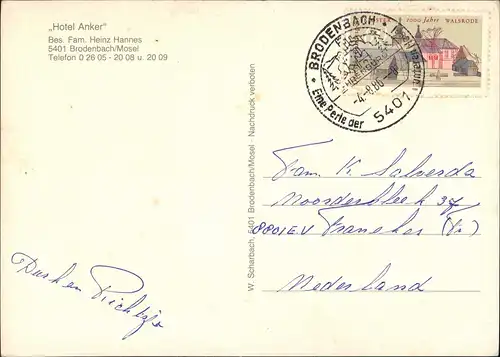 „Hotel Anker"
Bes. Fam. Heinz Hannes
5401 Brodenbach/Mosel
Telefon 0 26 05 - 20 08 u. 20 09
W. Scharbach, 5401 Brodenbach/Mosel - Nachdruck verboten
BRODENBACH
-4.-8.86
Eine Perle der
5401
1000 Jahre WALSRODE
Fam K. Salverda
Noorderbleek 37
8801 EV Franeker (Fr)
Nederland